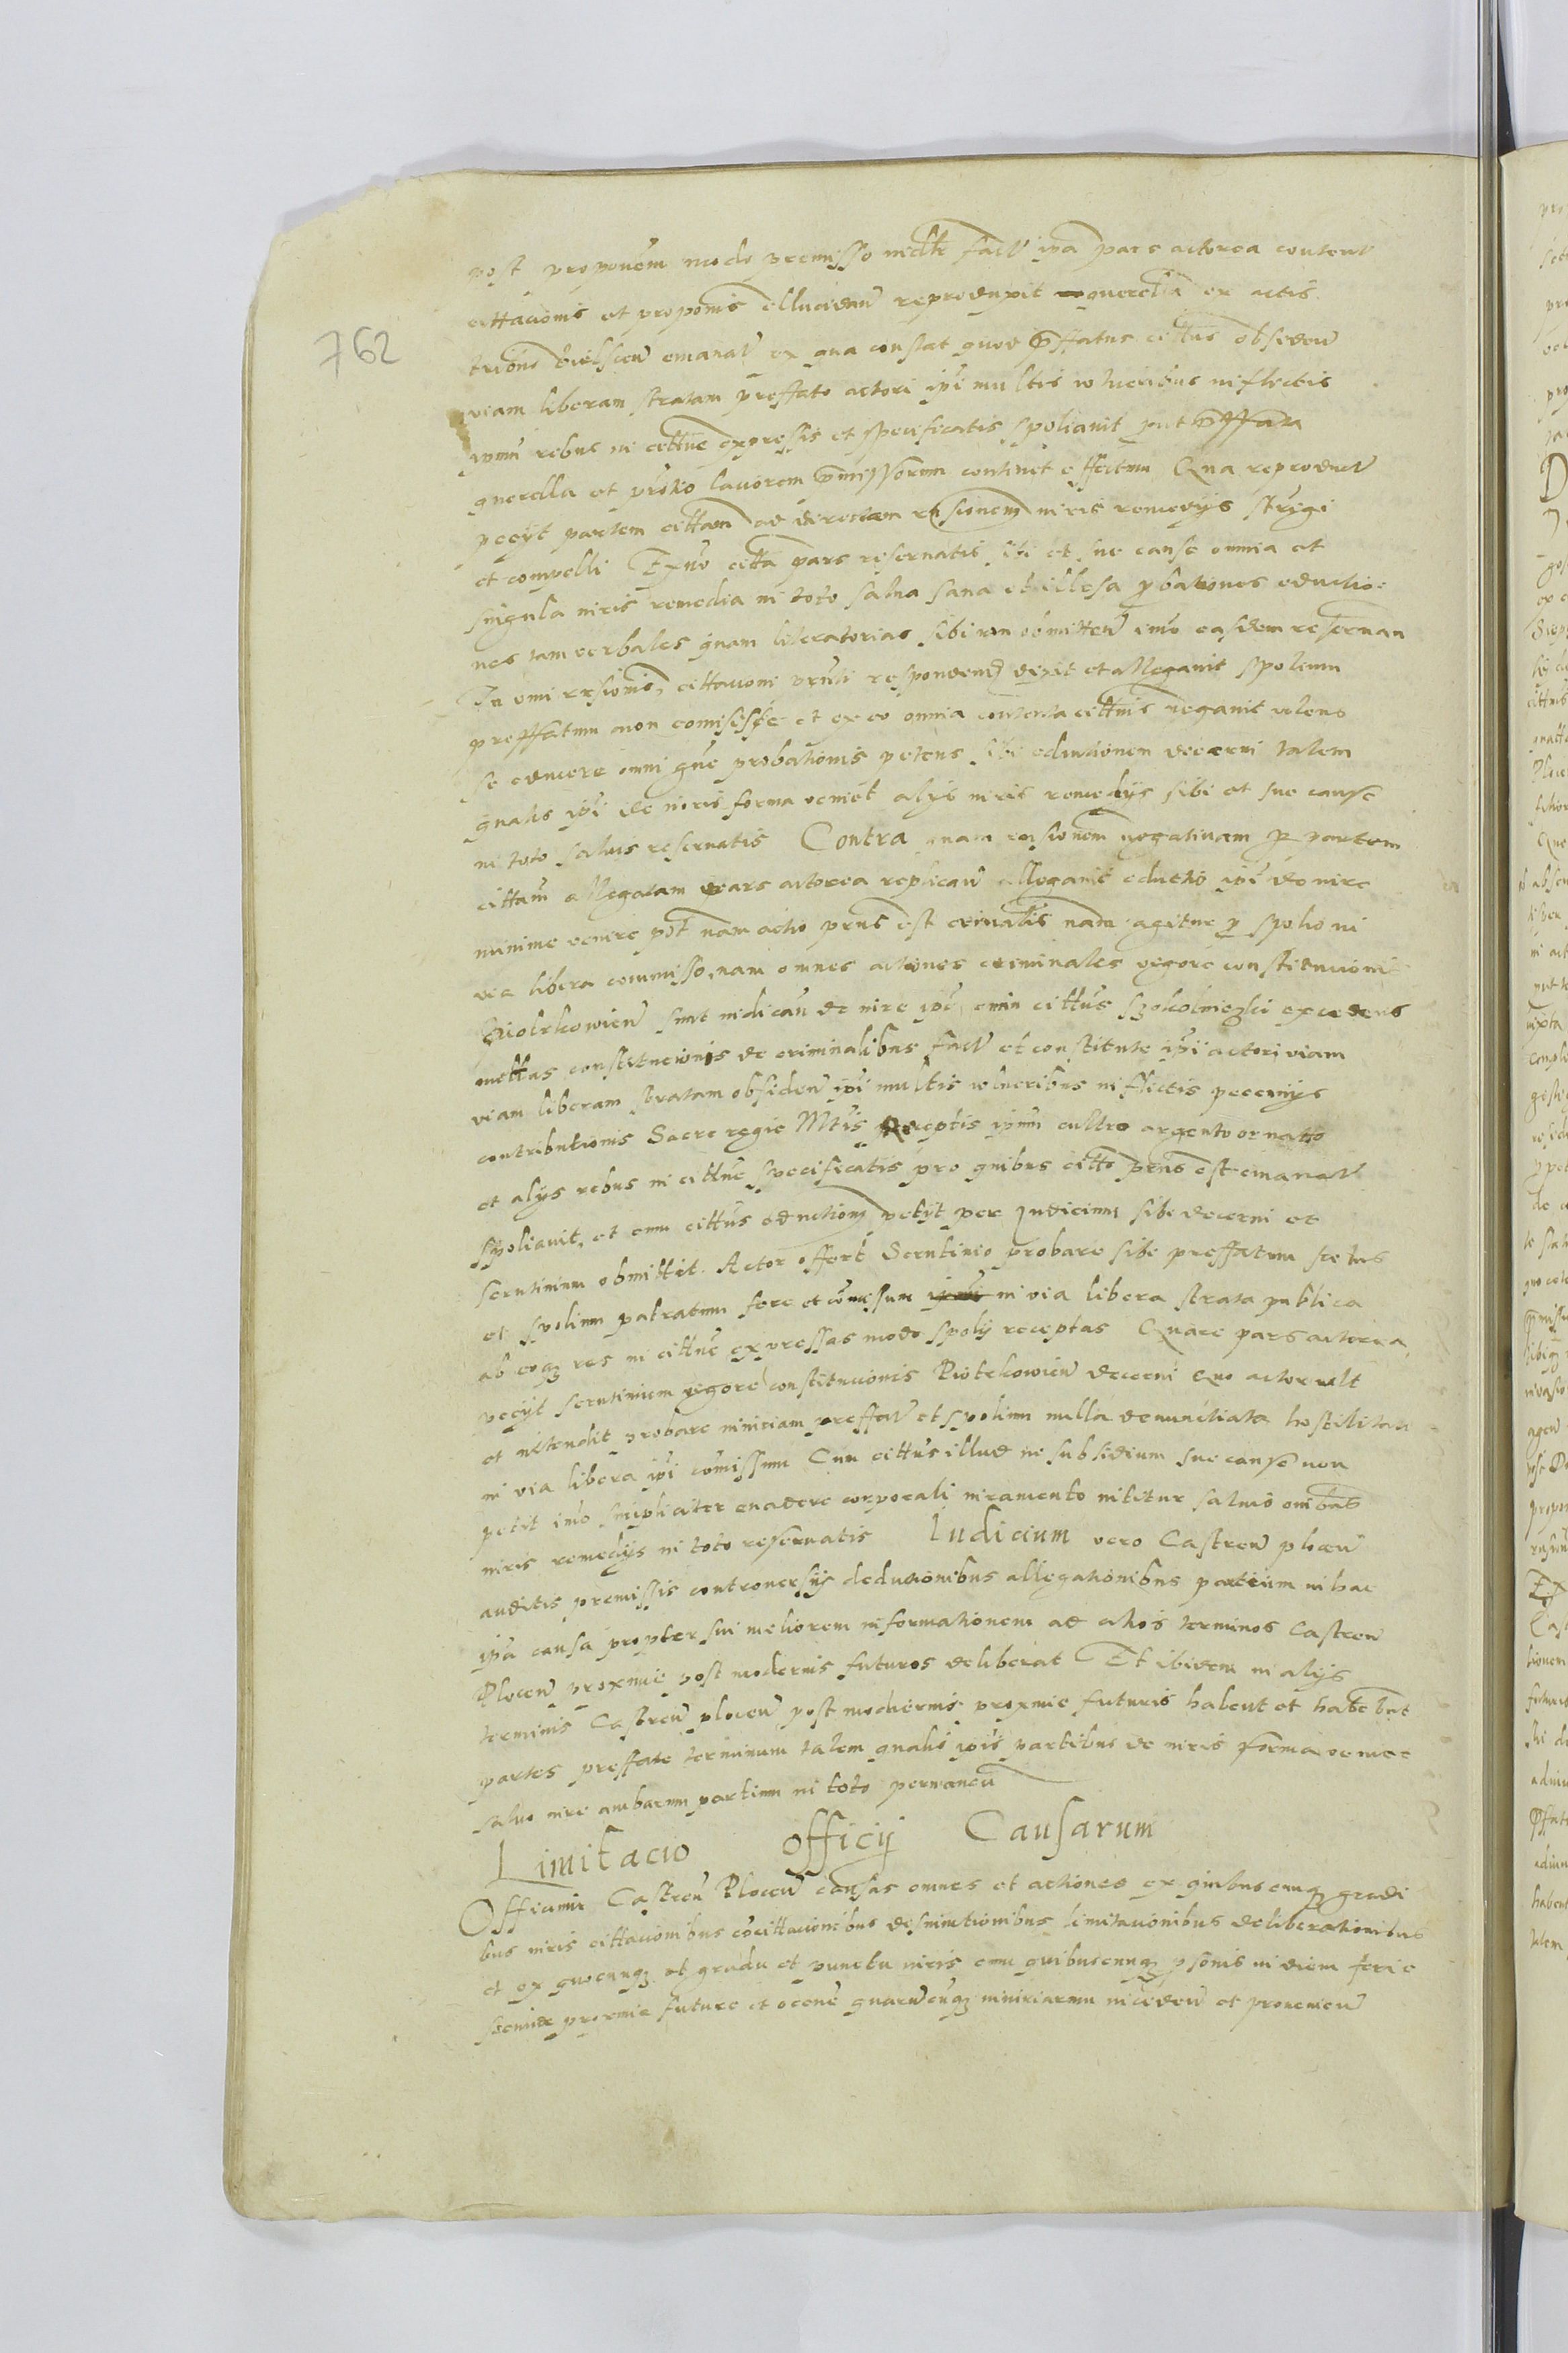 762
post proponem modo premisso iudlr fact ipa pars actorea content
cittacionis et proponis ellucidan reproduxit querella ex actis
Bielscen emanat ex qua constat quod pffatus cittus obsiden
viam liberam stratam preffato actori ipi multis wlneribus inflictis
ipum rebus in cittne expressis et specificatis spoliavit put pffata
querella et pmissorum continet effectum Qua reproducta
pecyt partem cittam ad directam rnsionem iuris remedys stringi
et compelli Exno citta pars reservatis sibi et sue cause omnia et
singula iuris remedia in toto salva sana et illesa pbationes eductio:
nes tam verbales quam literatorias sibi non obmitten imo easdem reservan
In omi rnsionis cittacioni respondend dixit et allegavit spolium
preffatum non comisisse et ex eo omnia contenta cittnis negavit volens
se educere omni gne probationis petens sibi eductionem decerni talem
qualis ipi de iuris forma veniet alys iuris remedys sibi et sue cause
in toto salvis reservatis Contra quam rnsionem negativam p partem
cittam allegatam pars actorea replican allegavit eductio ipi de iure
minime venire pot nam actio pns est criminalis nam agitur p spolio in
via libera commisso, nam omnes actiones criminales vigore constitucionis
Piotrkowien sunt iudican de iure ipe enim cittus Szokolniczki excedens
mettas constitucionis de criminalibus fact et constitute ipi actori viam
viam liberam stratam obsiden ipi multis wlneribus inflictis peccuniis
contributionis Sacre regie Mtis receptis ipum cultro argento ornatto
et alys rebus in cittne specificatis pro quibus citto pns est emanat
spoliavit, et cum cittus eductionem petyt per Judicium sibi decerni et
scrutinium obmittit. Actor offert Scrutinio probare sibi preffatum scelus
et spolium patratum fore et comissum in via libera strata publica
ab eoq res in cittne expressas modo spoly receptas Quare pars actorea
pecyt scrutinium vigore constitucionis Piotrkowien decerni Quo actor vult
et intendit probare iniuriam preffat et spolium nulla denunctiata hostilitate
in via libera ipi comissum Cum cittus illud in subsidium sue cause non
petit imo simpliciter evadere corporali iuramento nititur salvis omibus
iuris remedys in toto reservatis Iudicium vero Castren plocen
auditis premissis controversys deductionibus allegationibus partium in hac
ipa causa propter sui meliorem informationem ad alios terminos Castren
Plocen proxime post modernis futuros deliberat Et ibidem in alys
terminis Castren plocen post modernis proxime futuris habent et habebunt
partes preffate terminum talem qualis ipis partibus de iuris forma veniet
salvo iure ambarum partium in toto permanen
Limitacio officij Causarum
Officium Castren Plocen causas omnes et actiones ex quibuscunq gradi
bus iuris cittacionibus cocittacionibus desinitionibus limitacionibus deliberationibus
et ex quocunq et gradu et punctu iuris cum quibuscunq psonis in diem ferie
proxime future et quarumcunq iniuriarum inceden et provenien